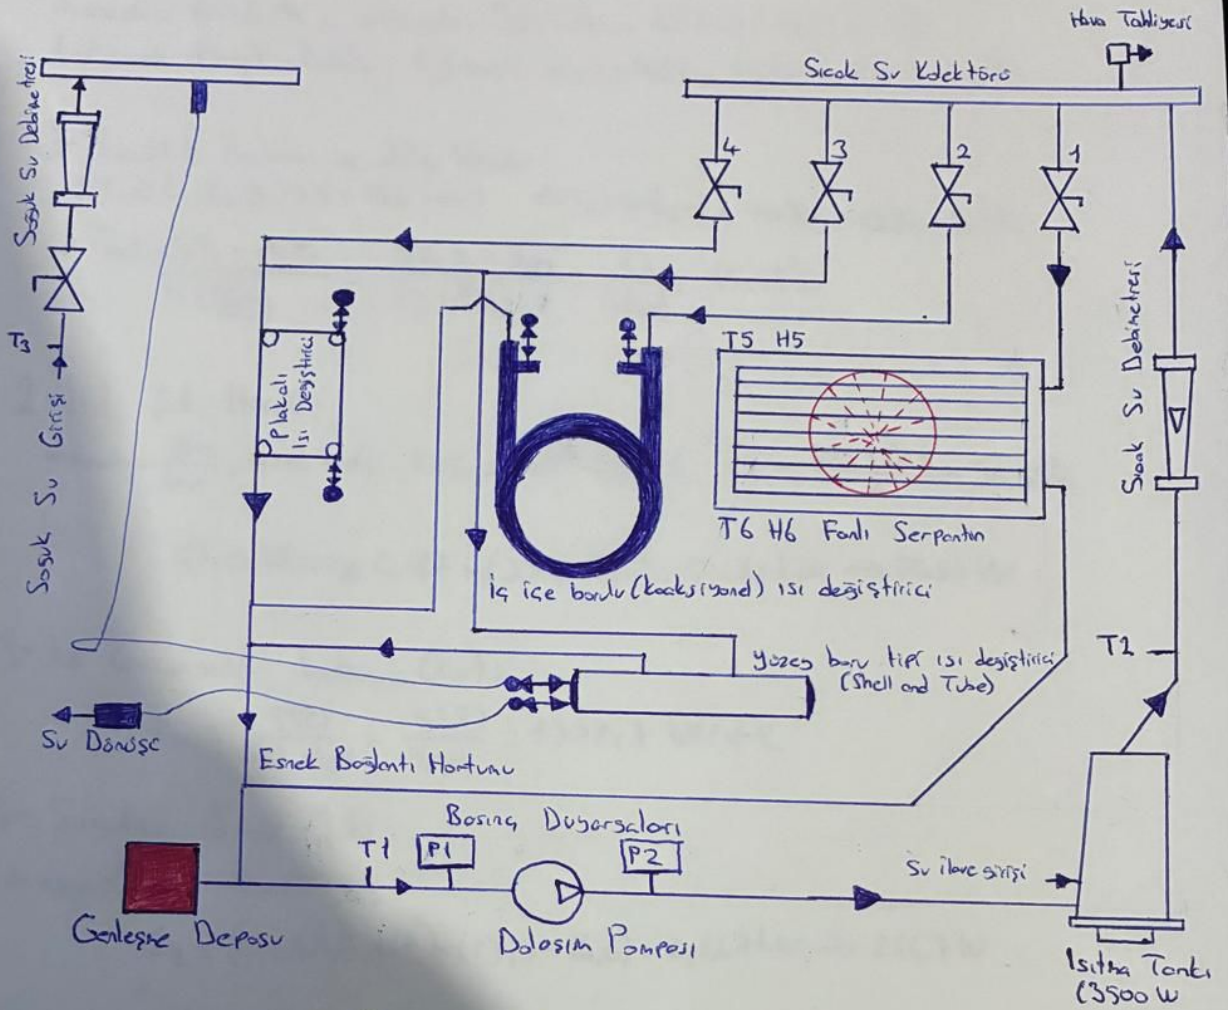 Hava Tahliyesi
Sıcak Su Kolektörü
4
3
2
1
Soğuk Su Debimetresi
T3
Soğuk Su Girişi
Plakalı
Isı Değiştirici
T5 H5
T6 H6 Fanlı Serpantin
Sıcak Su Debimetresi
İç içe borulu (koaksiyonel) ısı değiştirici
T2
Yüzey boru tipi ısı değiştirici
(Shell and Tube)
Su Dönüşü
Esnek Bağlantı Hortumu
Basınç Duyargaları
T1
P1
P2
Su ilave girişi
Genleşme Deposu
Dolaşım Pompası
Isıtma Tankı
(3500 W